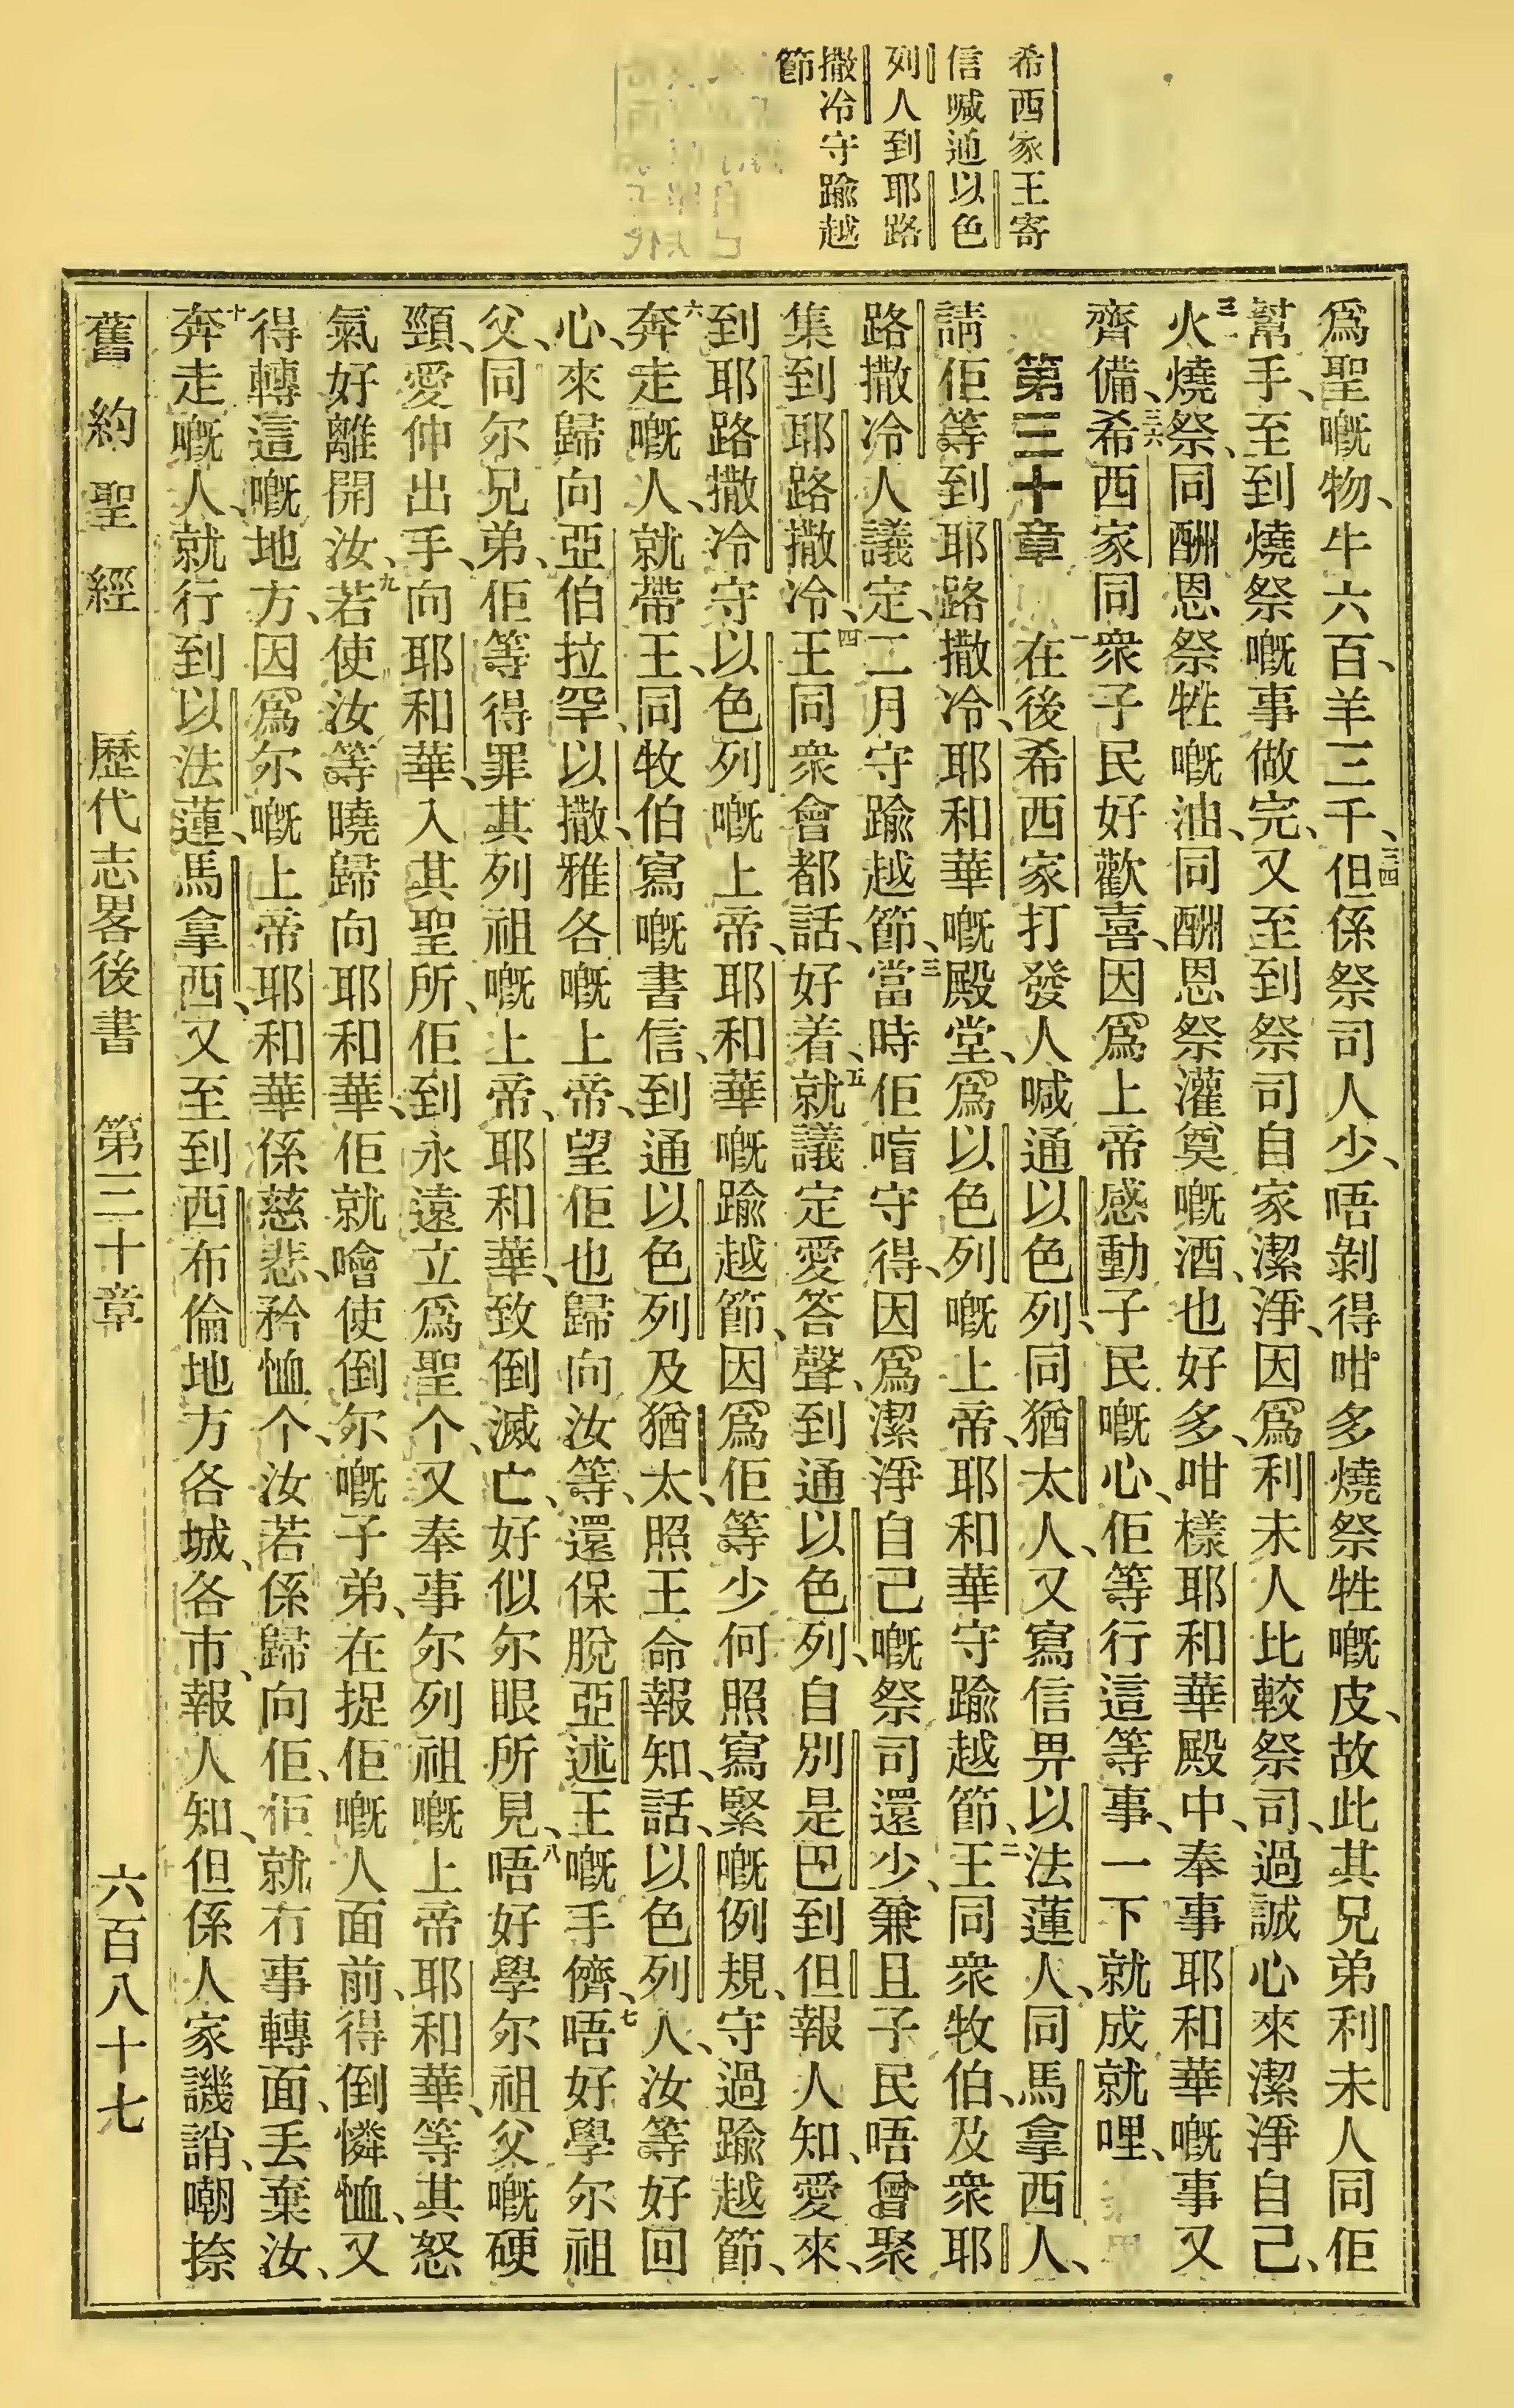 希西家王寄
信喊通以色
列人到耶路
撒冷守踰越
節
爲聖嘅物、牛六百、羊三千、三四但係祭司人少、唔剝得咁多燒祭牲嘅皮、故此其兄弟利未人同佢
幫手、至到燒祭嘅事做完、又至到祭司自家潔淨、因爲利未人比較祭司、過誠心來潔淨自己、
火燒祭、同酬恩祭牲嘅油、同酬恩祭灌奠嘅酒、也好多、咁樣耶和華殿中、奉事耶和華嘅事又
齊備、三六希西家同衆子民好歡喜、因爲上帝感動子民嘅心、佢等行這等事、一下就成就哩、
第三十章　一在後希西家打發人喊通以色列、同猶太人、又寫信畀以法蓮人、同馬拿西人、
請佢等到耶路撒冷、耶和華嘅殿堂、爲以色列嘅上帝、耶和華守踰越節、二王同衆牧伯、及衆耶
路撒冷人議定、二月守踰越節、三當時佢唔守得、因爲潔淨自己嘅祭司還少、兼且子民唔曾聚
集到耶路撒冷、四王同衆會都話、好着、五就議定愛答聲、到通以色列、自別是巴到但報人知、愛來、
到耶路撒冷守以色列嘅上帝、耶和華嘅踰越節、因爲佢等少何照寫緊嘅例規、守過踰越節、
六奔走嘅人、就帶王、同牧伯寫嘅書信、到通以色列及猶太、照王命報知、話、以色列人、汝等好回
心、來歸向亞伯拉罕、以撒、雅各嘅上帝、望佢也歸向汝等、還保脫亞述王嘅手儕、七唔好學尔祖
父、同尔兄弟、佢等得罪其列祖嘅上帝、耶和華、致倒滅亡、好似尔眼所見、八唔好學尔祖父嘅硬
頸、愛伸出手、向耶和華、入其聖所、佢到永遠立爲聖个、又奉事尔列祖嘅上帝耶和華、等其怒
氣好離開汝、九若使汝等曉歸向耶和華、佢就噲使倒尔嘅子弟、在捉佢嘅人面前、得倒憐恤、又
得轉這嘅地方、因爲尔嘅上帝耶和華係慈悲、矜恤个、汝若係歸向佢、佢就冇事轉面、丟棄汝、
十奔走嘅人、就行到以法蓮、馬拿西、又至到西布倫地方各城、各市、報人知、但係人家譏誚、嘲捺
舊約聖經　歷代志畧後書　第三十章　六百八十七